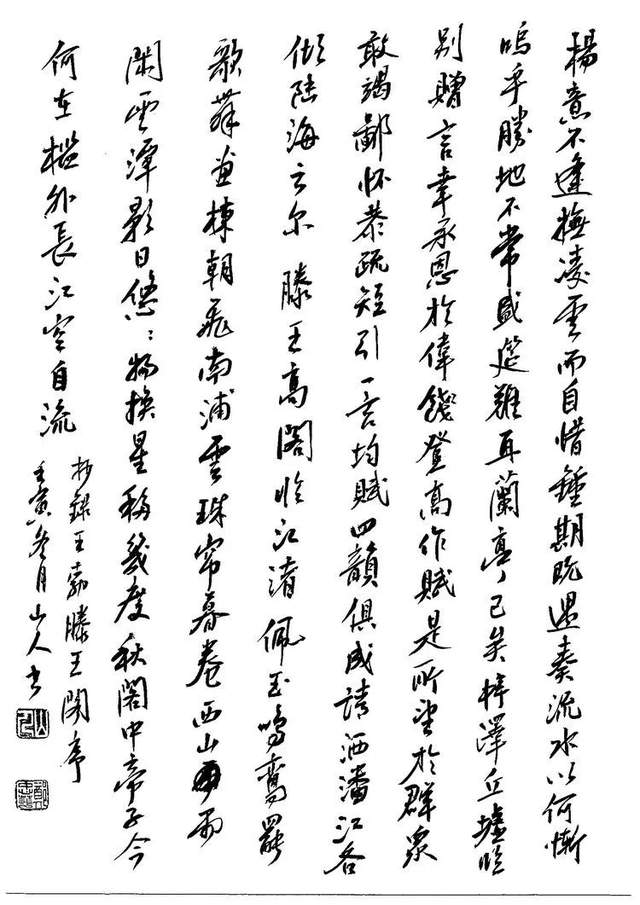 楊意不逢撫凌雲而自惜鍾期既遇奏流水以何慚
嗚乎勝地不常盛筵難再蘭亭已矣梓澤丘墟临
别贈言幸承恩於偉餞登高作賦是所望於群衆
敢竭鄙怀恭疏短引一言均賦四韻俱成請洒潘江各
倾陆海云尔 滕王高閣临江渚佩玉鳴鸞罷
歌舞画棟朝飛南浦雲珠帘暮卷西山雨
閑雲潭影日悠〻物换星移幾度秋閣中帝子今
何在檻外長江空自流
抄録王勃滕王閣序
壬寅冬月山人书